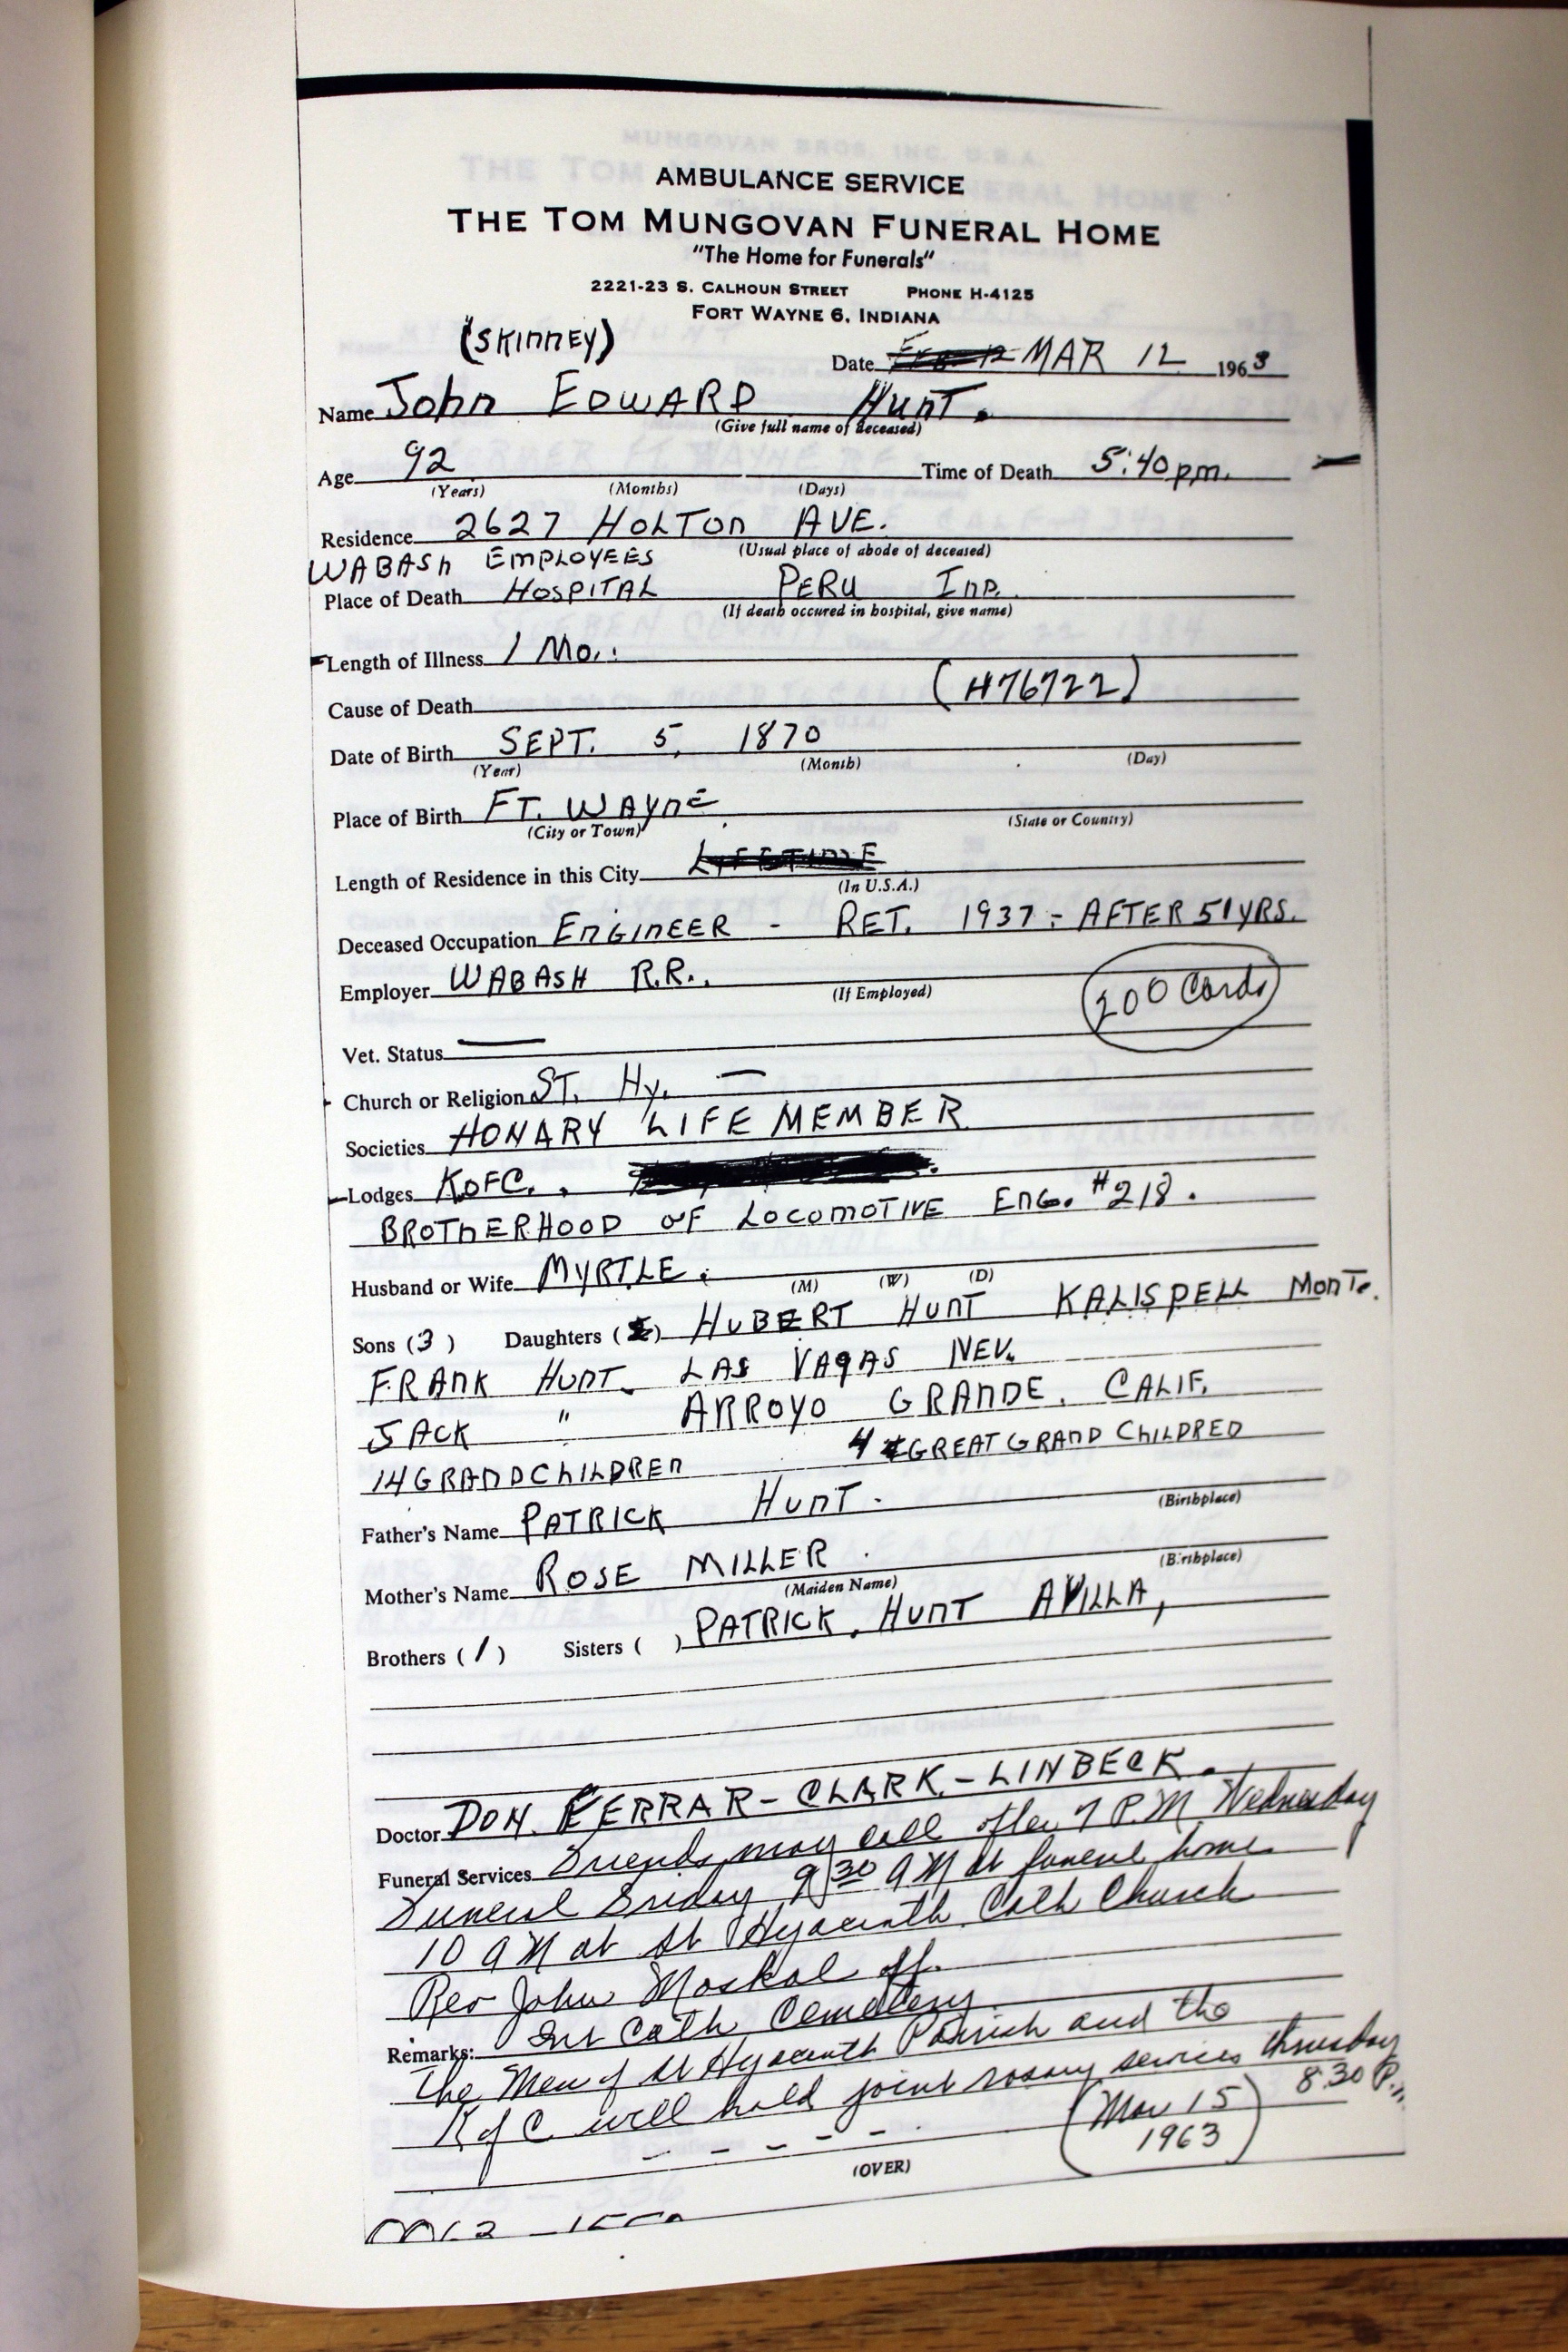 AMBULANCE SERVICE
THE TOM MUNGOVAN FUNERAL HOME
"The Home for Funerals"
2221-23 S. CALHOUN STREET PHONE H-4125
FORT WAYNE 6, INDIANA
(SKINNEY)
Date MAR 12 1963
Name John EDWARD HUNT.
(Give full name of deceased)
Age 92 Time of Death 5:40 pm.
(Years) (Months) (Days)
Residence 2627 HOLTON AVE.
(Usual place of abode of deceased)
WABASH EMPLOYEES
Place of Death HOSPITAL PERU IND.
(If death occured in hospital, give name)
Length of Illness 1 Mo.
Cause of Death (H76722)
Date of Birth SEPT. 5, 1870
(Year) (Month) (Day)
Place of Birth FT. WAYNE
(City or Town) (State or Country)
Length of Residence in this City LIFETIME
(In U.S.A.)
Deceased Occupation ENGINEER - RET. 1937 - AFTER 51 YRS.
Employer WABASH R.R.
(If Employed)
200 Cards
Vet. Status —
Church or Religion ST. Hy. —
Societies HONARY LIFE MEMBER
Lodges K OF C.
BROTHERHOOD OF LOCOMOTIVE ENG. #218.
Husband or Wife MYRTLE. (M) (W) (D)
Sons (3) Daughters ( ) HUBERT HUNT KALISPELL MONT.
FRANK HUNT. LAS VAGAS NEV.
JACK " ARROYO GRANDE. CALIF.
14 GRANDCHILDREN 4 GREAT GRAND CHILDRED
Father's Name PATRICK HUNT.
(Birthplace)
Mother's Name ROSE MILLER
(Maiden Name) (Birthplace)
Brothers (1) Sisters ( ) PATRICK. HUNT AVILLA,
Doctor DON. FERRAR - CLARK - LINBECK.
Funeral Services Friends may call after 7 P.M Wednesday
Funeral Friday 9:30 AM at funeral home
10 AM at St Hyacinth Cath Church
Rev John Moskal off.
Remarks: Int Cath Cemetery
The Men of St Hyacinth Parrish and the
K of C will hold joint rosary services thursday
8:30 P.m
(Mar 15
1963)
(OVER)